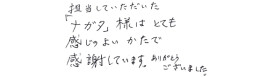 担当していただいた
「ナガタ」様はとても
感じのよいかたで
感謝しています。ありがとう
ございました。